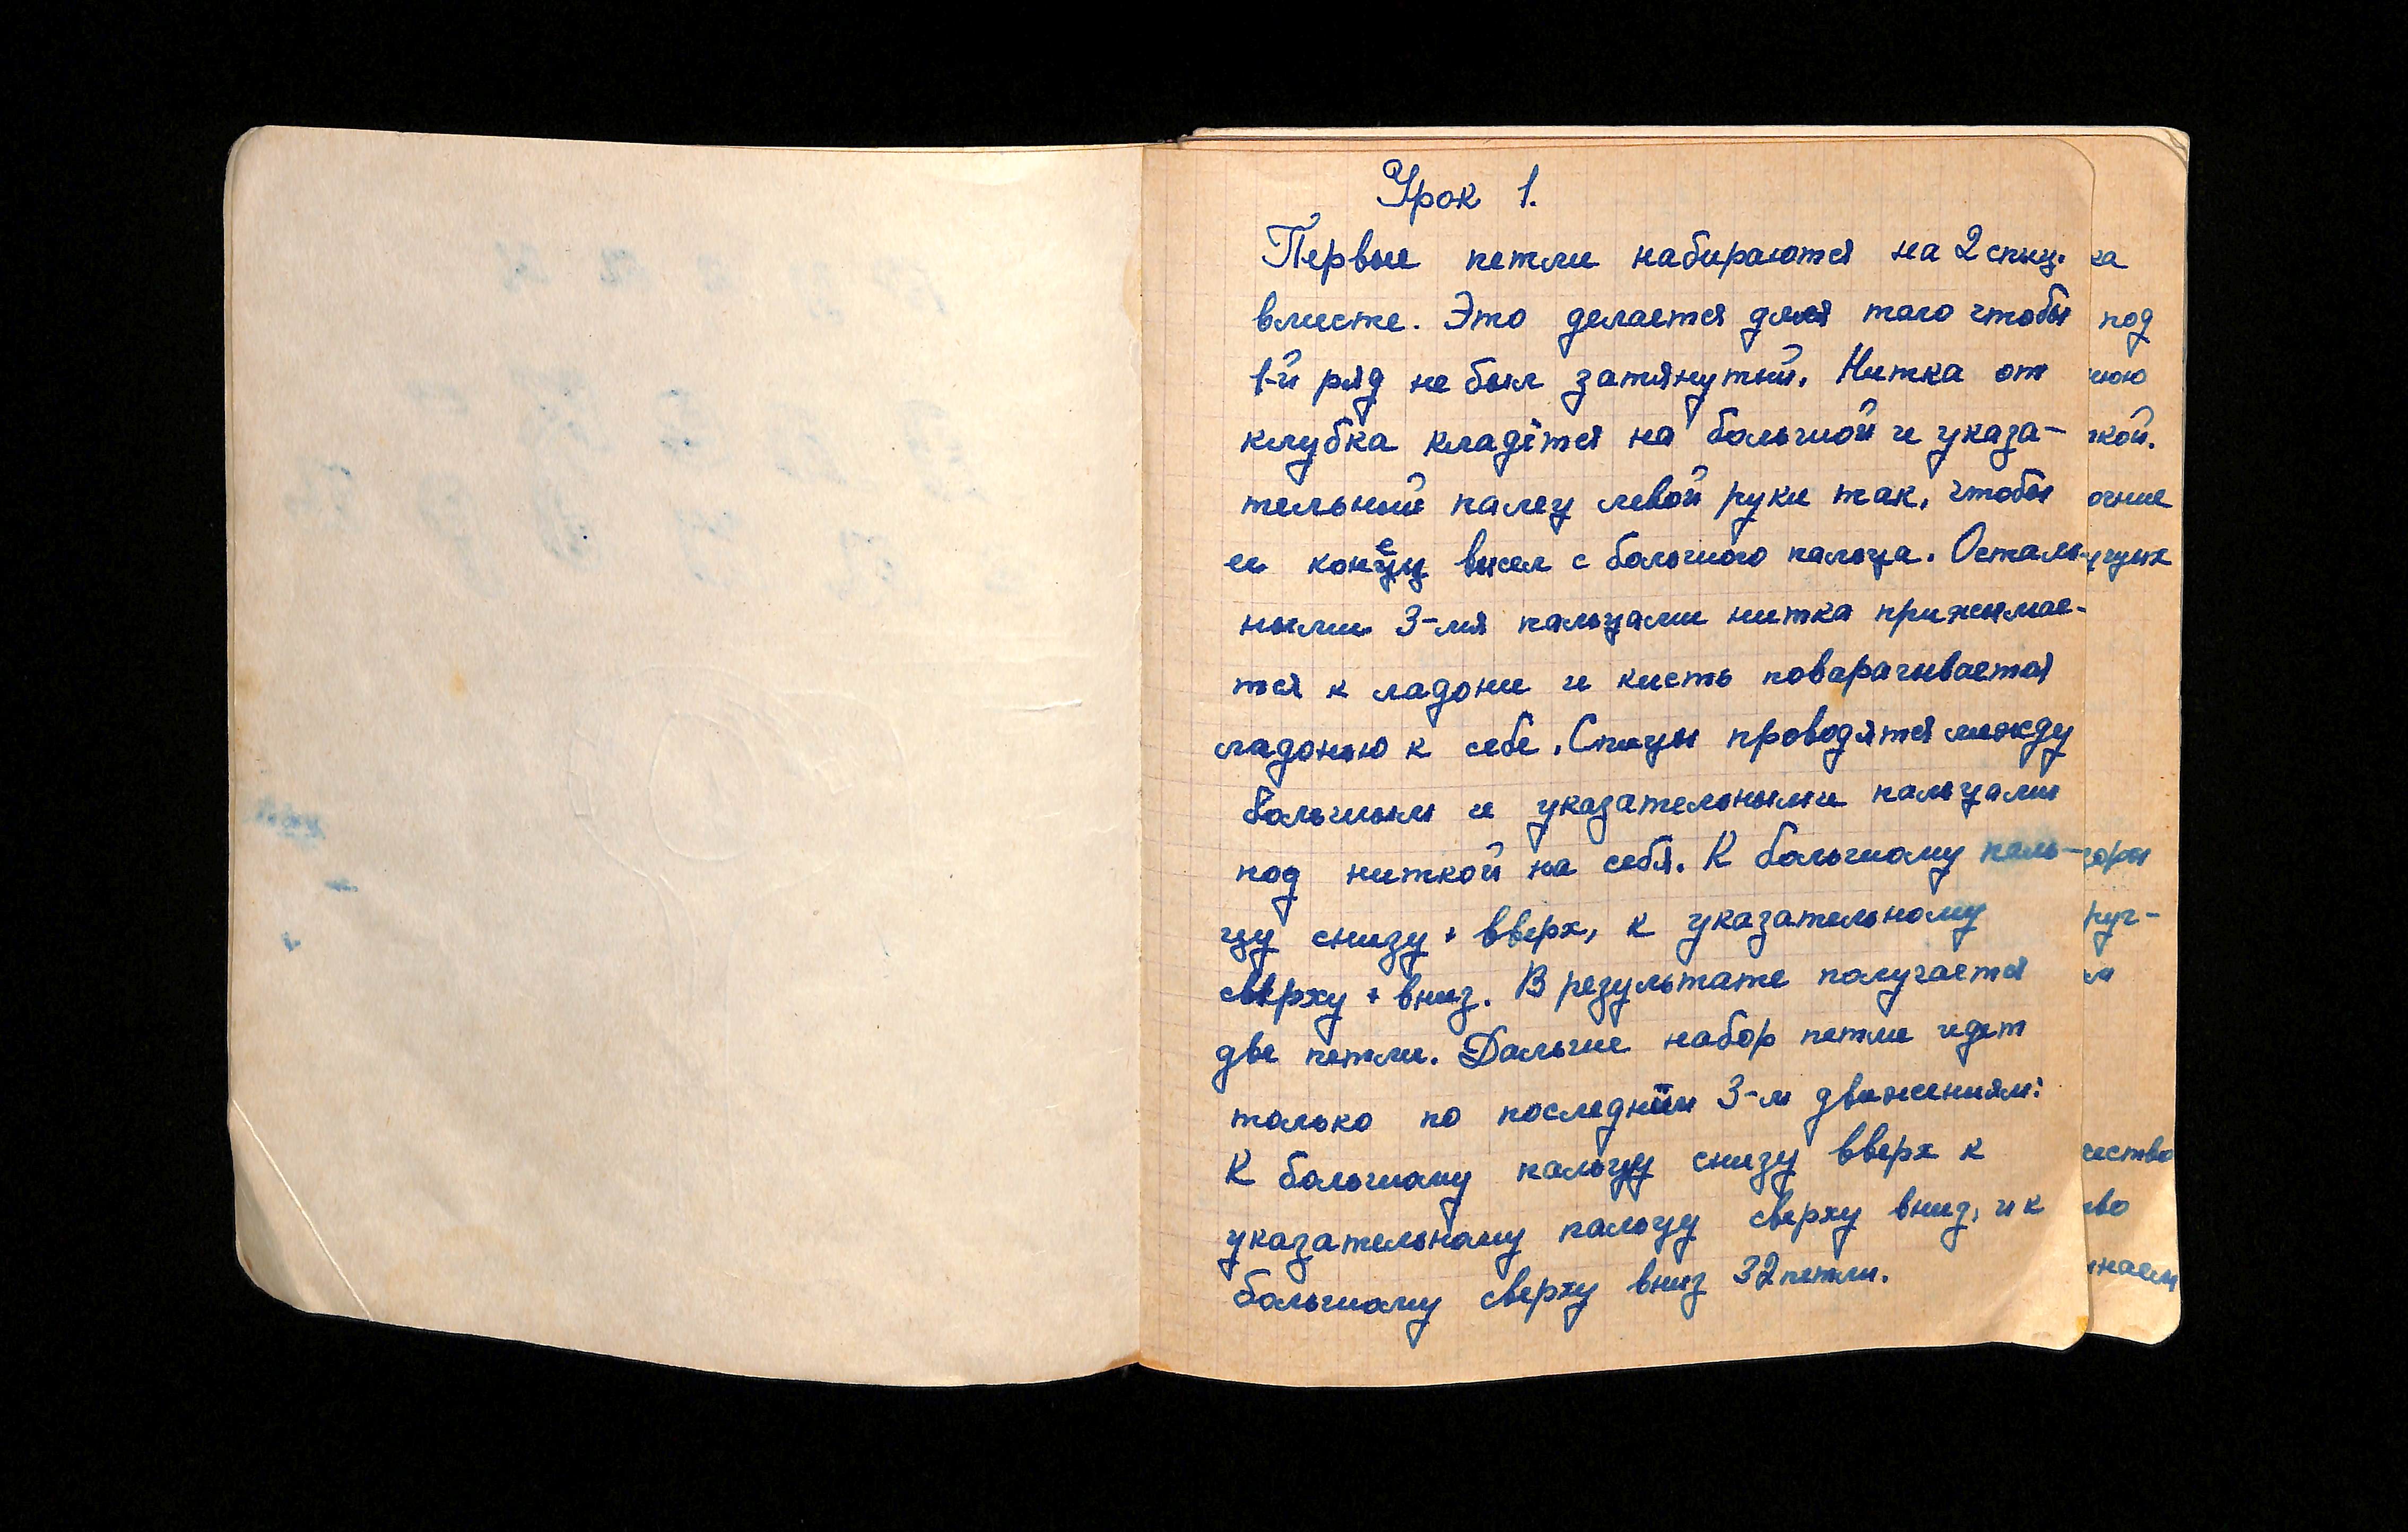 Урок 1.
Первые петли набираются на 2 спиц.
вместе. Это делается для того чтобы
1-й ряд не был затянутый. Нитка от
клубка кладётся на большой и указа-
тельный палец левой руки так, чтобы
ее конец висел с большого пальца. Осталь-
ными 3-мя пальцами нитка прижимае-
тся к ладони и кисть поварачивается
ладонью к себе. Спицы проводятся между
большим и указательными пальцами
под ниткой на себя. К большому паль-
цу снизу + вверх, к указательному
сверху + вниз. В результате получается
две петли. Дальше набор петли идет
только по последним 3-м движениям:
К большому пальцу снизу вверх к
указательному пальцу сверху вниз, и к
большому сверху вниз 32 петли.
ка
под
нюю
кой.
очние
ество
во
инаем